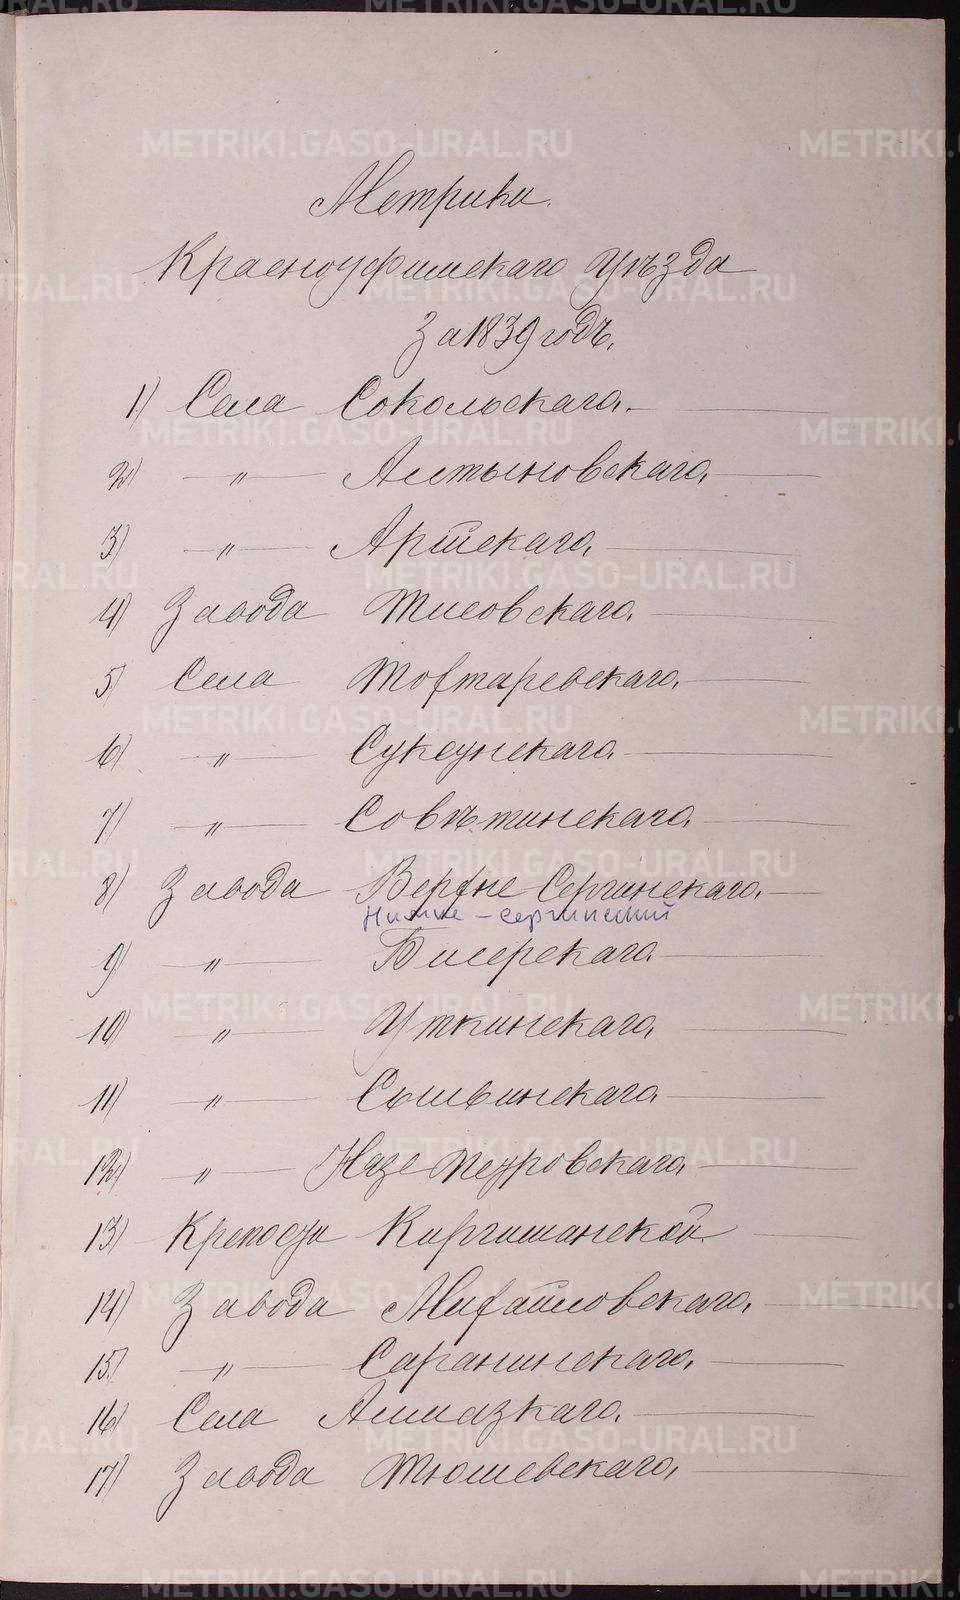 Метрики
Красноуфимскаго Уѣзда
За 1839 годъ.
1) Села Сокольскаго.
2) " Алтыновскаго,
3) " Артйскаго,
4) Завода Тисовскаго.
5) Села Тохтаревскаго.
6) " Суксунскаго.
7) " Совѣтинскаго.
8) Завода Верхне Сергинскаго.
Нижне - Сергинский
9) " Бисерскаго.
10) " Уткинскаго,
11) " Сылвинскаго.
12) " Назепетровскаго.
13) Крепости Киргишанской.
14) Завода Михайловскаго,
15) " Саранинскаго,
16) Села
17) Завода Тюшевскаго,
METRIKI.GASO-URAL.RU